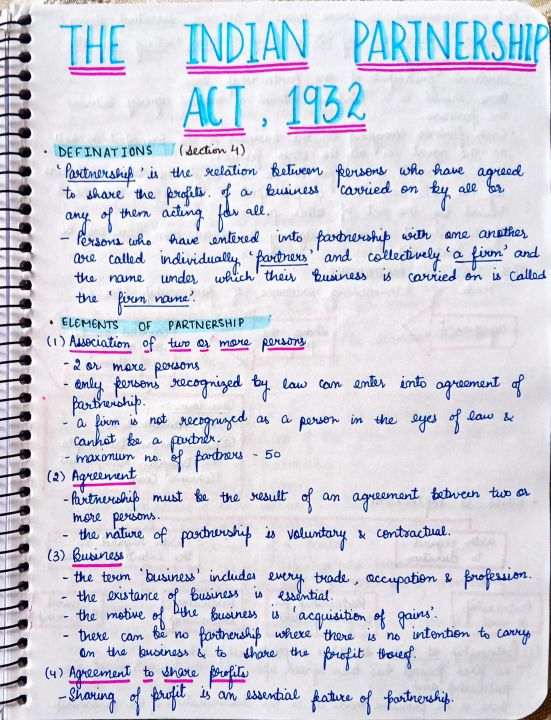 THE INDIAN PARTNERSHIP
ACT, 1932
• DEFINATIONS (section 4)
'Partnership' is the relation between persons who have agreed
to share the profits. of a business carried on by all or
any of them acting for all.
- Persons who have entered into partnership with one another
are called individually 'partners' and collectively 'a firm' and
the name under which their business is carried on is called
the 'firm name'.
• ELEMENTS OF PARTNERSHIP
(1) Association of two or more persons
- 2 or more persons
- only persons recognized by law can enter into agreement of
partnership.
- a firm is not recognized as a person in the eyes of law &
cannot be a partner.
- maximum no. of partners - 50
(2) Agreement
- Partnership must be the result of an agreement between two or
more persons.
- the nature of partnership is voluntary & contractual.
(3) Business
- the term 'business' includes every trade, occupation & profession.
- the existance of business is essential.
- the motive of the business is 'acquisition of gains'.
- there can be no partnership where there is no intention to carry
on the business & to share the profit thereof.
(4) Agreement to share profits
- Sharing of profit is an essential feature of partnership.